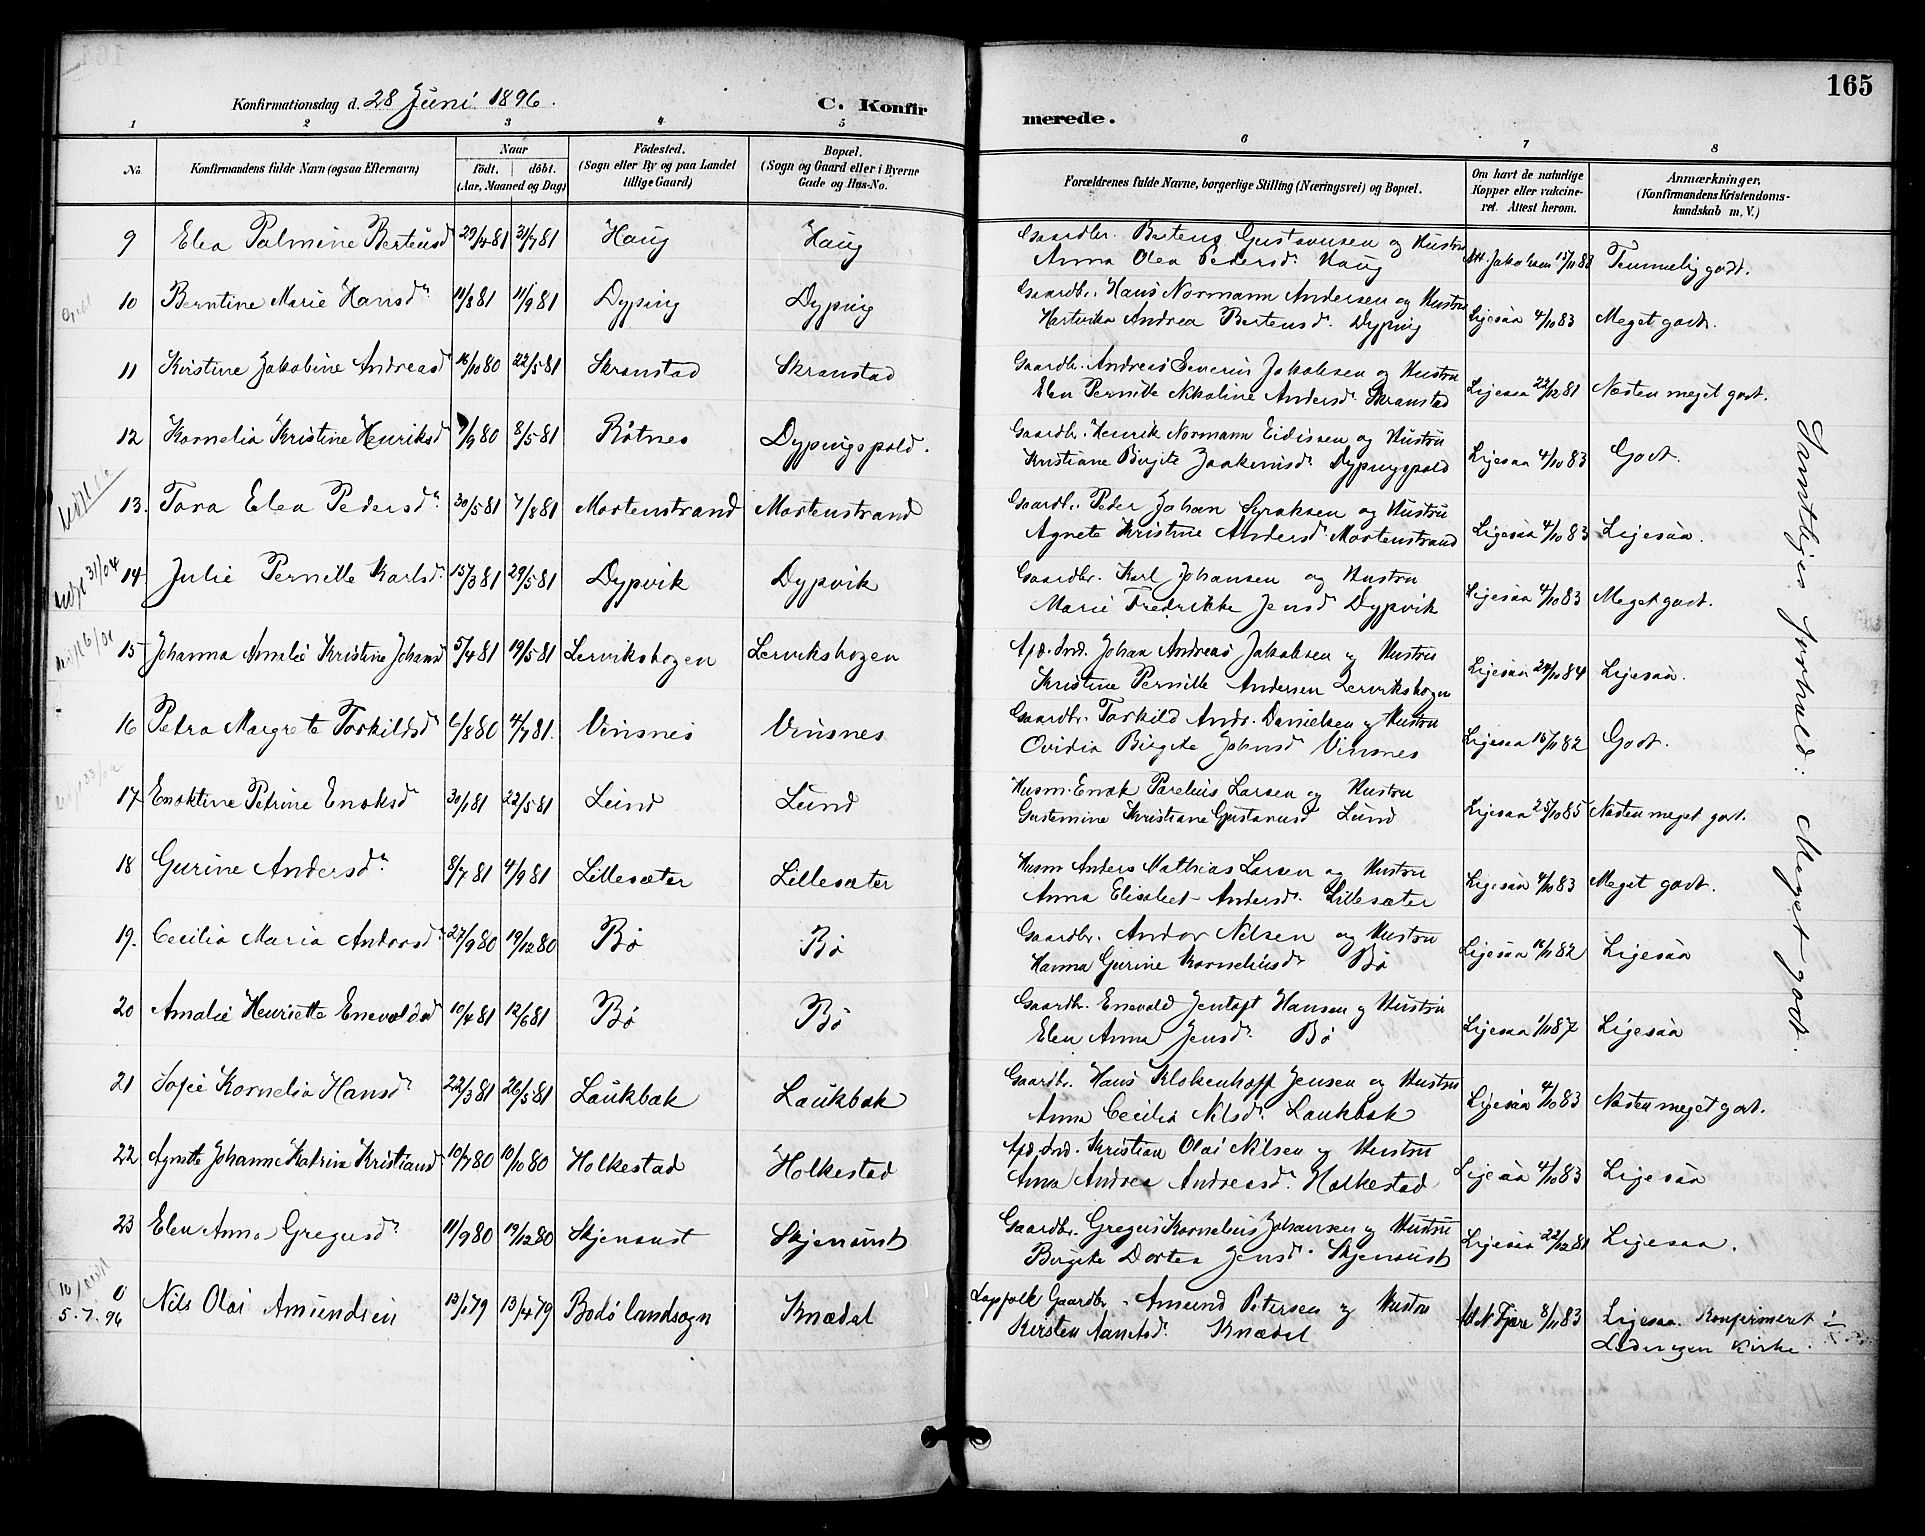 165
Konfirmationsdag d. 28 Juni 1896.
C. Konfir
merede.
1 2 3 4 5 6 7 8
No. Konfirmandens fulde Navn (ogsaa Efternavn) Naar født. døbt. (Aar, Maaned og Dag) Födested. (Sogn eller By og paa Landet tillige Gaard) Bopæl. (Sogn og Gaard eller i Byerne Gade og Hus-No. Forældrenes fulde Navne, borgerlige Stilling (Næringsvei) og Bopæl. Om havt de naturlige Kopper eller vakcineret. Attest herom. Anmærkninger. (Konfirmandens Kristendomskundskab m. V.)
9 Elea Palmine Berteusd 29/4 81 31/7 81 Haug Haug Gaardbr. Berteus Gustavusen og Hustru
Anna Olea Pedersdr. Haug Jakobsen 15/11 83 Temmelig godt.
10 Berntine Marie Hansdr 11/8 81 11/9 81 Dyping Dyping Gaardbr. Hans Normann Andersen og Hustru
Hartvika Andrea Berteusd. Dyping Ligesaa 4/10 83 Meget godt.
11 Kristine Jakobine Andreasd 16/10 80 22/5 81 Skranstad Skranstad Gaardbr. Andreas Severin Jakobsen og Hustru
Elen Pernille Nikoline Andersdr. Skranstad Ligesaa 22/12 81 Næsten meget godt.
12 Kornelia Kristine Henriksd /9 80 8/5 81 Røtnes Dypingspold. Gaardbr. Henrik Normann Eidissen og Hustru
Kristiane Birgite Joakimsdr. Dypingspold Ligesaa 4/10 83 Godt.
13. Tora Elea Pedersdr 30/5 81 7/8 81 Mortenstrand Mortenstrand Gaardbr. Peder Johan Syraksen og Hustru
Agnete Kristine Andersdr. Mortenstrand Ligesaa 4/10 83 Ligesaa.
14 Julie Pernille Karlsdr. 15/3 81 29/5 81 Dypvik Dypvik Gaardbr. Karl Johansen og Hustru
Marie Fredrikke Jensd Dypvik Ligesaa 4/10 83 Meget godt.
15 Johanna Amalie Kristine Johansd 5/4 81 19/5 81 Lervikshogen Lervikshogen Johan Andreas Jakobsen og Hustru
Kristine Pernille Andersen Lervikshogen Ligesaa 24/10 84 Ligesaa.
16 Petra Margrete Torkildsdr 6/8 80 4/7 81. Vinsnes Vinsnes Gaardbr. Torkild Andr. Danielsen og Hustru
Ovidia Birgite Johnsd. Vinsnes Ligesaa 16/11 82 Godt.
17 Enoktine Petrine Enoksdr 30/1 81 22/5 81 Lund Lund Husm. Enok Parelius Larsen og Hustru
Gustemine Kristiane Gustavusd Lund Ligesaa 25/10 85 Næsten meget godt.
18 Gurine Andersdr 8/7 81 4/9 81 Lillesæter Lillesæter Husm Anders Mathias Larsen og Hustru
Anna Elisabet Andersdr. Lillesæter Ligesaa 4/10 83 Meget godt.
19. Cecilia Maria Andorsdr 27/9 80 19/12 80 Bø Bø Gaardbr. Andor Nilsen og Hustru
Hanna Gurine Korneliusdr Bø Ligesaa 16/11 82 Ligesaa
20 Amalie Henriette Enevoldsd 10/4 81 12/6 81 Bø Bø Gaardbr. Enevold Jentoft Hansen og Hustru
Elen Anna Jensdr. Bø Ligesaa 1/11 87 Ligesaa
21 Sofie Kornelia Hansdr 22/3 81 26/5 81 Laukbak Laukbak Gaardbr. Hans Klokenhoff Jensen og Hustru
Anna Cecilia Nilsdr. Laukbak Ligesaa 4/10 83 Næsten meget godt.
22 Agnette Johanne Katrine Kristiansd 10/7 80 10/10 80 Holkestad Holkestad Kristian Olai Nilsen og Hustru
Anna Andrea Andreasdr. Holkestad Ligesaa 4/10 83 Ligesaa
23 Elen Anna Gregusdr 11/9 80 19/12 80 Skjensust Skjensust Gaardbr. Gregus Kornelius Johansen og Hustru
Birgite Dortea Jensdr. Skjensust Ligesaa 22/12 81 Ligesaa.
5.7.96 Nils Olai Amundsen 13/1 79 13/4 79 Bodø landsogn Knædal Lapfolk Gaardbr. Amund Petersen og Hustru
Kirsten Knædal Fjære 8/11 83 Ligesaa. Konfirmeret i
Kirke.
Samtliges Forhold: Meget godt.